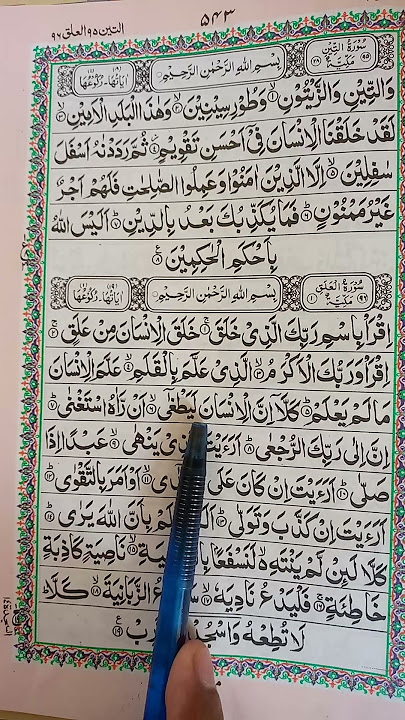 التين ٩٥ العلق ٩٦
٥٤٣
سُوْرَةُ التِّيْنِ مَكِّيَّةٌ ٩٥ ٢٨
بِسْمِ اللّٰهِ الرَّحْمٰنِ الرَّحِيْمِ
اٰيَاتُهَا ٨ رُكُوْعُهَا ١
وَالتِّيْنِ وَالزَّيْتُوْنِ ١ وَطُوْرِ سِيْنِيْنَ ٢ وَهٰذَا الْبَلَدِ الْاَمِيْنِ ٣
لَقَدْ خَلَقْنَا الْاِنْسَانَ فِيْٓ اَحْسَنِ تَقْوِيْمٍ ٤ ثُمَّ رَدَدْنٰهُ اَسْفَلَ
سٰفِلِيْنَ ٥ اِلَّا الَّذِيْنَ اٰمَنُوْا وَعَمِلُوا الصّٰلِحٰتِ فَلَهُمْ اَجْرٌ
غَيْرُ مَمْنُوْنٍ ٦ فَمَا يُكَذِّبُكَ بَعْدُ بِالدِّيْنِ ٧ اَلَيْسَ اللّٰهُ
بِاَحْكَمِ الْحٰكِمِيْنَ ٨
سُوْرَةُ الْعَلَقِ مَكِّيَّةٌ ٩٦ ١
بِسْمِ اللّٰهِ الرَّحْمٰنِ الرَّحِيْمِ
اٰيَاتُهَا ١٩ رُكُوْعُهَا ١
اِقْرَاْ بِاسْمِ رَبِّكَ الَّذِيْ خَلَقَ ١ خَلَقَ الْاِنْسَانَ مِنْ عَلَقٍ ٢
اِقْرَاْ وَرَبُّكَ الْاَكْرَمُ ٣ الَّذِيْ عَلَّمَ بِالْقَلَمِ ٤ عَلَّمَ الْاِنْسَانَ
مَا لَمْ يَعْلَمْ ٥ كَلَّآ اِنَّ الْاِنْسَانَ لَيَطْغٰٓى ٦ اَنْ رَّاٰهُ اسْتَغْنٰى ٧
اِنَّ اِلٰى رَبِّكَ الرُّجْعٰى ٨ اَرَءَيْتَ ذِيْ يَنْهٰى ٩ عَبْدًا اِذَا
صَلّٰى ١٠ اَرَءَيْتَ اِنْ كَانَ عَلَى دٰٓى ١١ اَوْ اَمَرَ بِالتَّقْوٰى ١٢
اَرَءَيْتَ اِنْ كَذَّبَ وَتَوَلّٰى ١٣ لَمْ بِاَنَّ اللّٰهَ يَرٰى ١٤
كَلَّا لَئِنْ لَّمْ يَنْتَهِ لَنَسْفَعًا ١٥ نَاصِيَةٍ كَاذِبَةٍ
خَاطِئَةٍ ١٦ فَلْيَدْعُ نَادِيَهٗ ١٧ الزَّبَانِيَةَ ١٨ كَلَّا
لَا تُطِعْهُ وَاسْجُدْ رِبْ ١٩